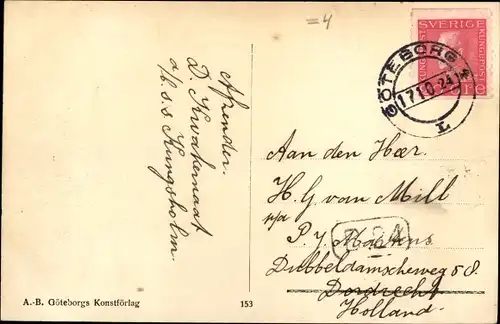 =4
SVERIGE
GÖTEBORG
17 10 24
L
Afzender.
D. Kwakernaat
a/b. s.s Kungsholm.
Aan den Heer.
H. G. van Mill
p/a
P. J. Martens
Dubbeldamscheweg 58.
Dordrecht
Holland.
A.-B. Göteborgs Konstförlag
153